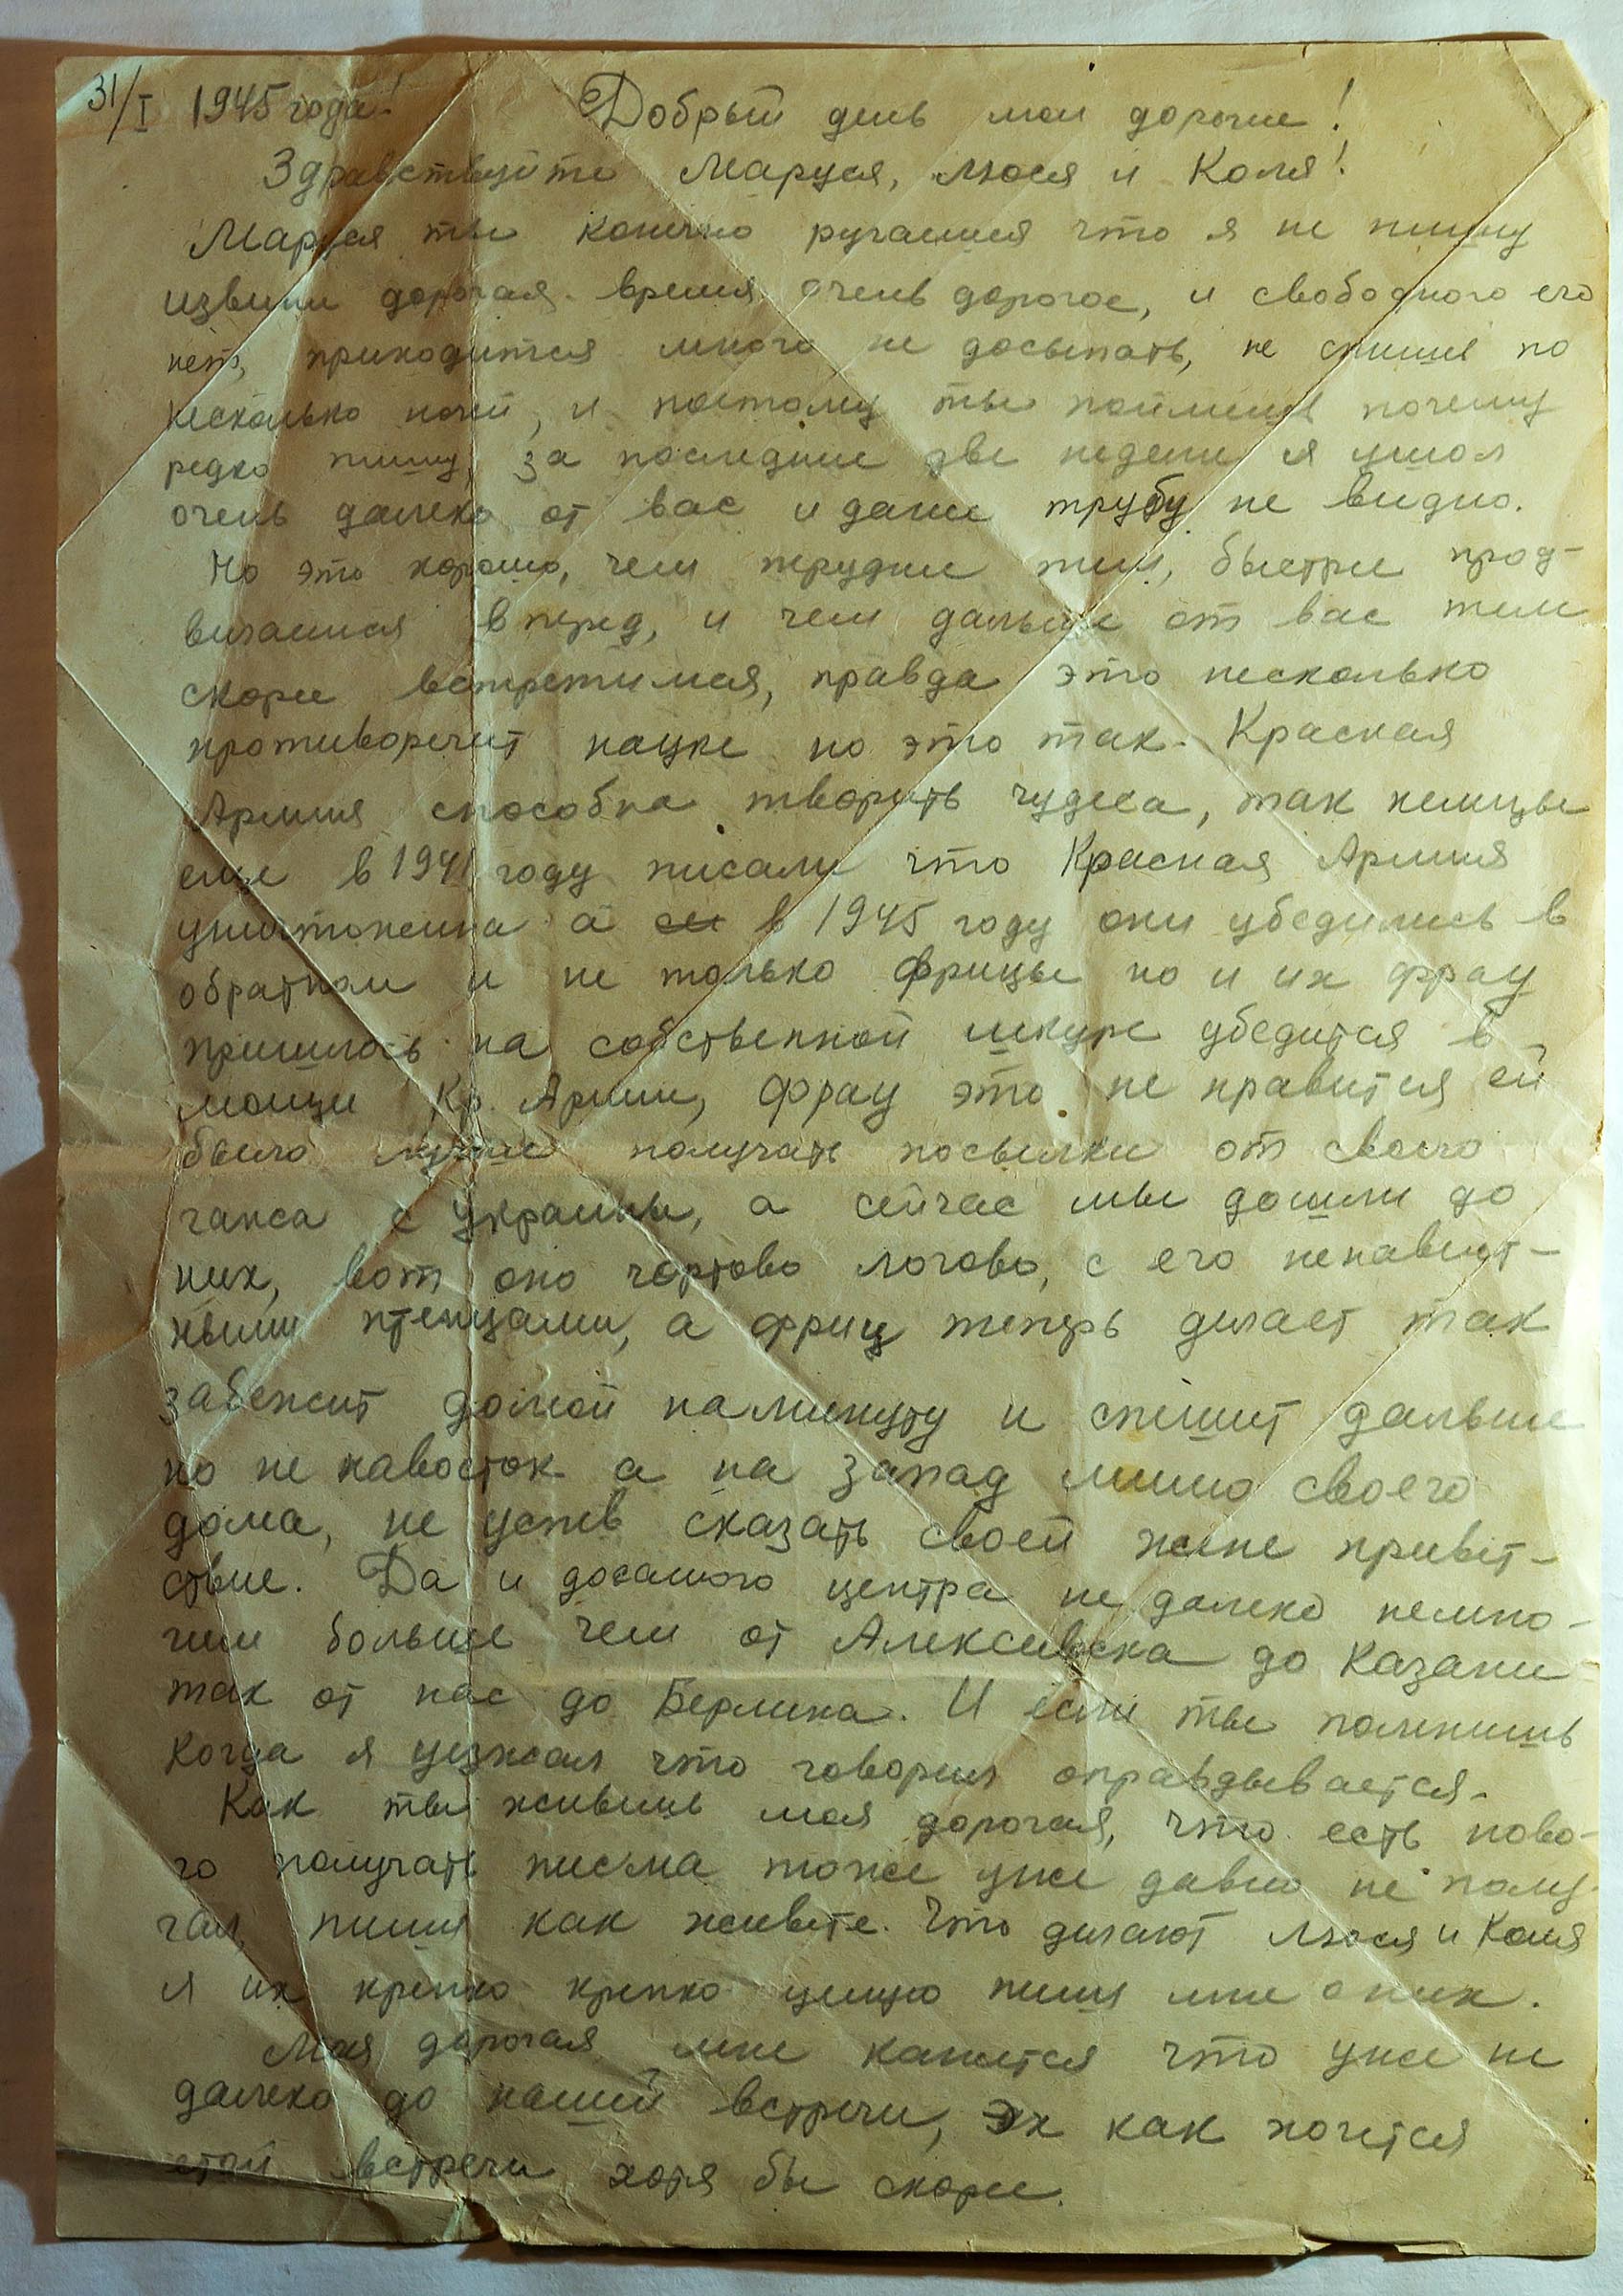 31/I 1945 года! Добрый день мои дорогие!
Здравствуйте Маруся, Люся и Коля!
Маруся ты конечно ругаешся что я не пишу
извини дорогая время очень дорогое, и свободного его
нет, приходится много не досыпать, не спишь по
несколько ночей, и поэтому ты поймешь почему
редко пишу, за последние две недели я ушол
очень далеко от вас и даже трубу не видно.
Но это хорошо, чем труднее тем, быстрее прод-
вигаемся вперед, и чем дальше от вас тем
скорее встретимся, правда это несколько
противоречит науке но это так. Красная
Армия способна творить чудеса, так немцы
еще в 1941 году писали что Красная Армия
уничтоженна а в 1945 году они убедились в
обратном и не только фрицы но и их фрау
пришлось на собственной шкуре убедится в
мощи Кр. Армии, фрау это не нравится ей
было лучше получать посылки от своего
ганса с украины, а сейчас мы дошли до
них, вот оно чортово логово, с его ненавист-
ными птенцами, а фриц теперь делает так
забежит домой наминуту и спешит дальше
но не навосток а на запад мимо своего
дома, не успев сказать своей жене привет-
ствие. Да и досамого центра не далеко немно-
гим больше чем от Алексеевска до Казани
так от нас до Берлина. И если ты помнишь
когда я уезжал что говорил оправдывается.
Как ты живешь моя дорогая, что есть ново-
го получать писма тоже уже давно не полу-
чал, пиши как живете. Что делают Люся и Коля
я их крепко крепко целую пиши мне о них.
Моя дорогая мне кажется что уже не
далеко до нашей встречи, эх как хочется
етой встречи хотя бы скорее.